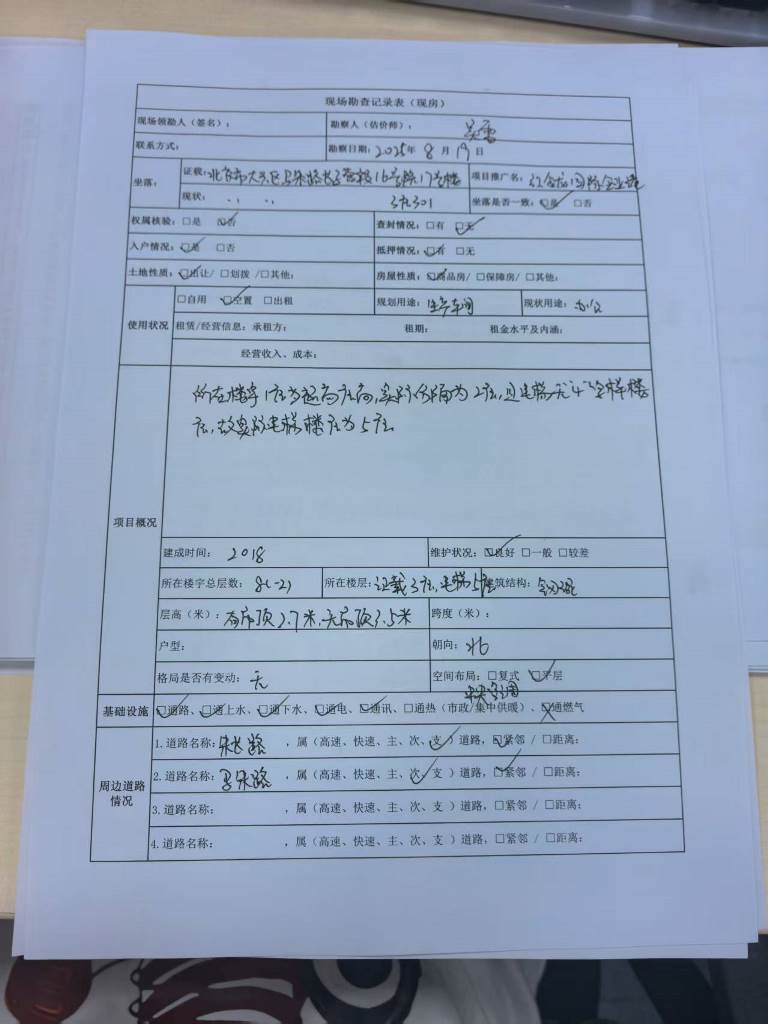 现场勘查记录表（现房）
现场领勘人（签名）： 勘察人（估价师）：
联系方式： 勘察日期：2025年 8 月 19 日
坐落： 证载：北京市大兴区 16号院17号楼 项目推广名： 国际企业港
现状： 〃 〃 3层301 坐落是否一致：☑是 □否
权属核验：□是 ☑否 查封情况：□有 ☑无
入户情况：☑是 □否 抵押情况：☑有 □无
土地性质：☑出让/ □划拨 /□其他： 房屋性质：☑商品房/ □保障房/ □其他：
使用状况 □自用 ☑空置 □出租 规划用途：生产车间 现状用途：办公
租赁/经营信息：承租方： 租期： 租金水平及内涵：
经营收入、成本：
项目概况
所在楼宇1层为超高层高，实际分隔为2层，且电梯无“4”字样楼
层，故实际电梯楼层为5层
建成时间：2018 维护状况：☑良好 □一般 □较差
所在楼宇总层数：8(-2) 所在楼层：证载3层，电梯5层 建筑结构：钢混
层高（米）：有吊顶2.7米，无吊顶3.5米 跨度（米）：
户型： 朝向：北
格局是否有变动：无 空间布局：□复式 ☑平层
中央空调
基础设施 ☑通路、☑通上水、☑通下水、☑通电、☑通讯、□通热（市政/集中供暖）、☒通燃气
周边道路情况 1.道路名称：朱长路 ，属（高速、快速、主、次、支✓）道路，☑紧邻 / □距离：
2.道路名称：马朱路 ，属（高速、快速、主、次✓支 ）道路，☑紧邻 / □距离：
3.道路名称： ，属（高速、快速、主、次、支 ）道路，□紧邻 / □距离：
4.道路名称： ，属（高速、快速、主、次、支 ）道路，□紧邻 / □距离：